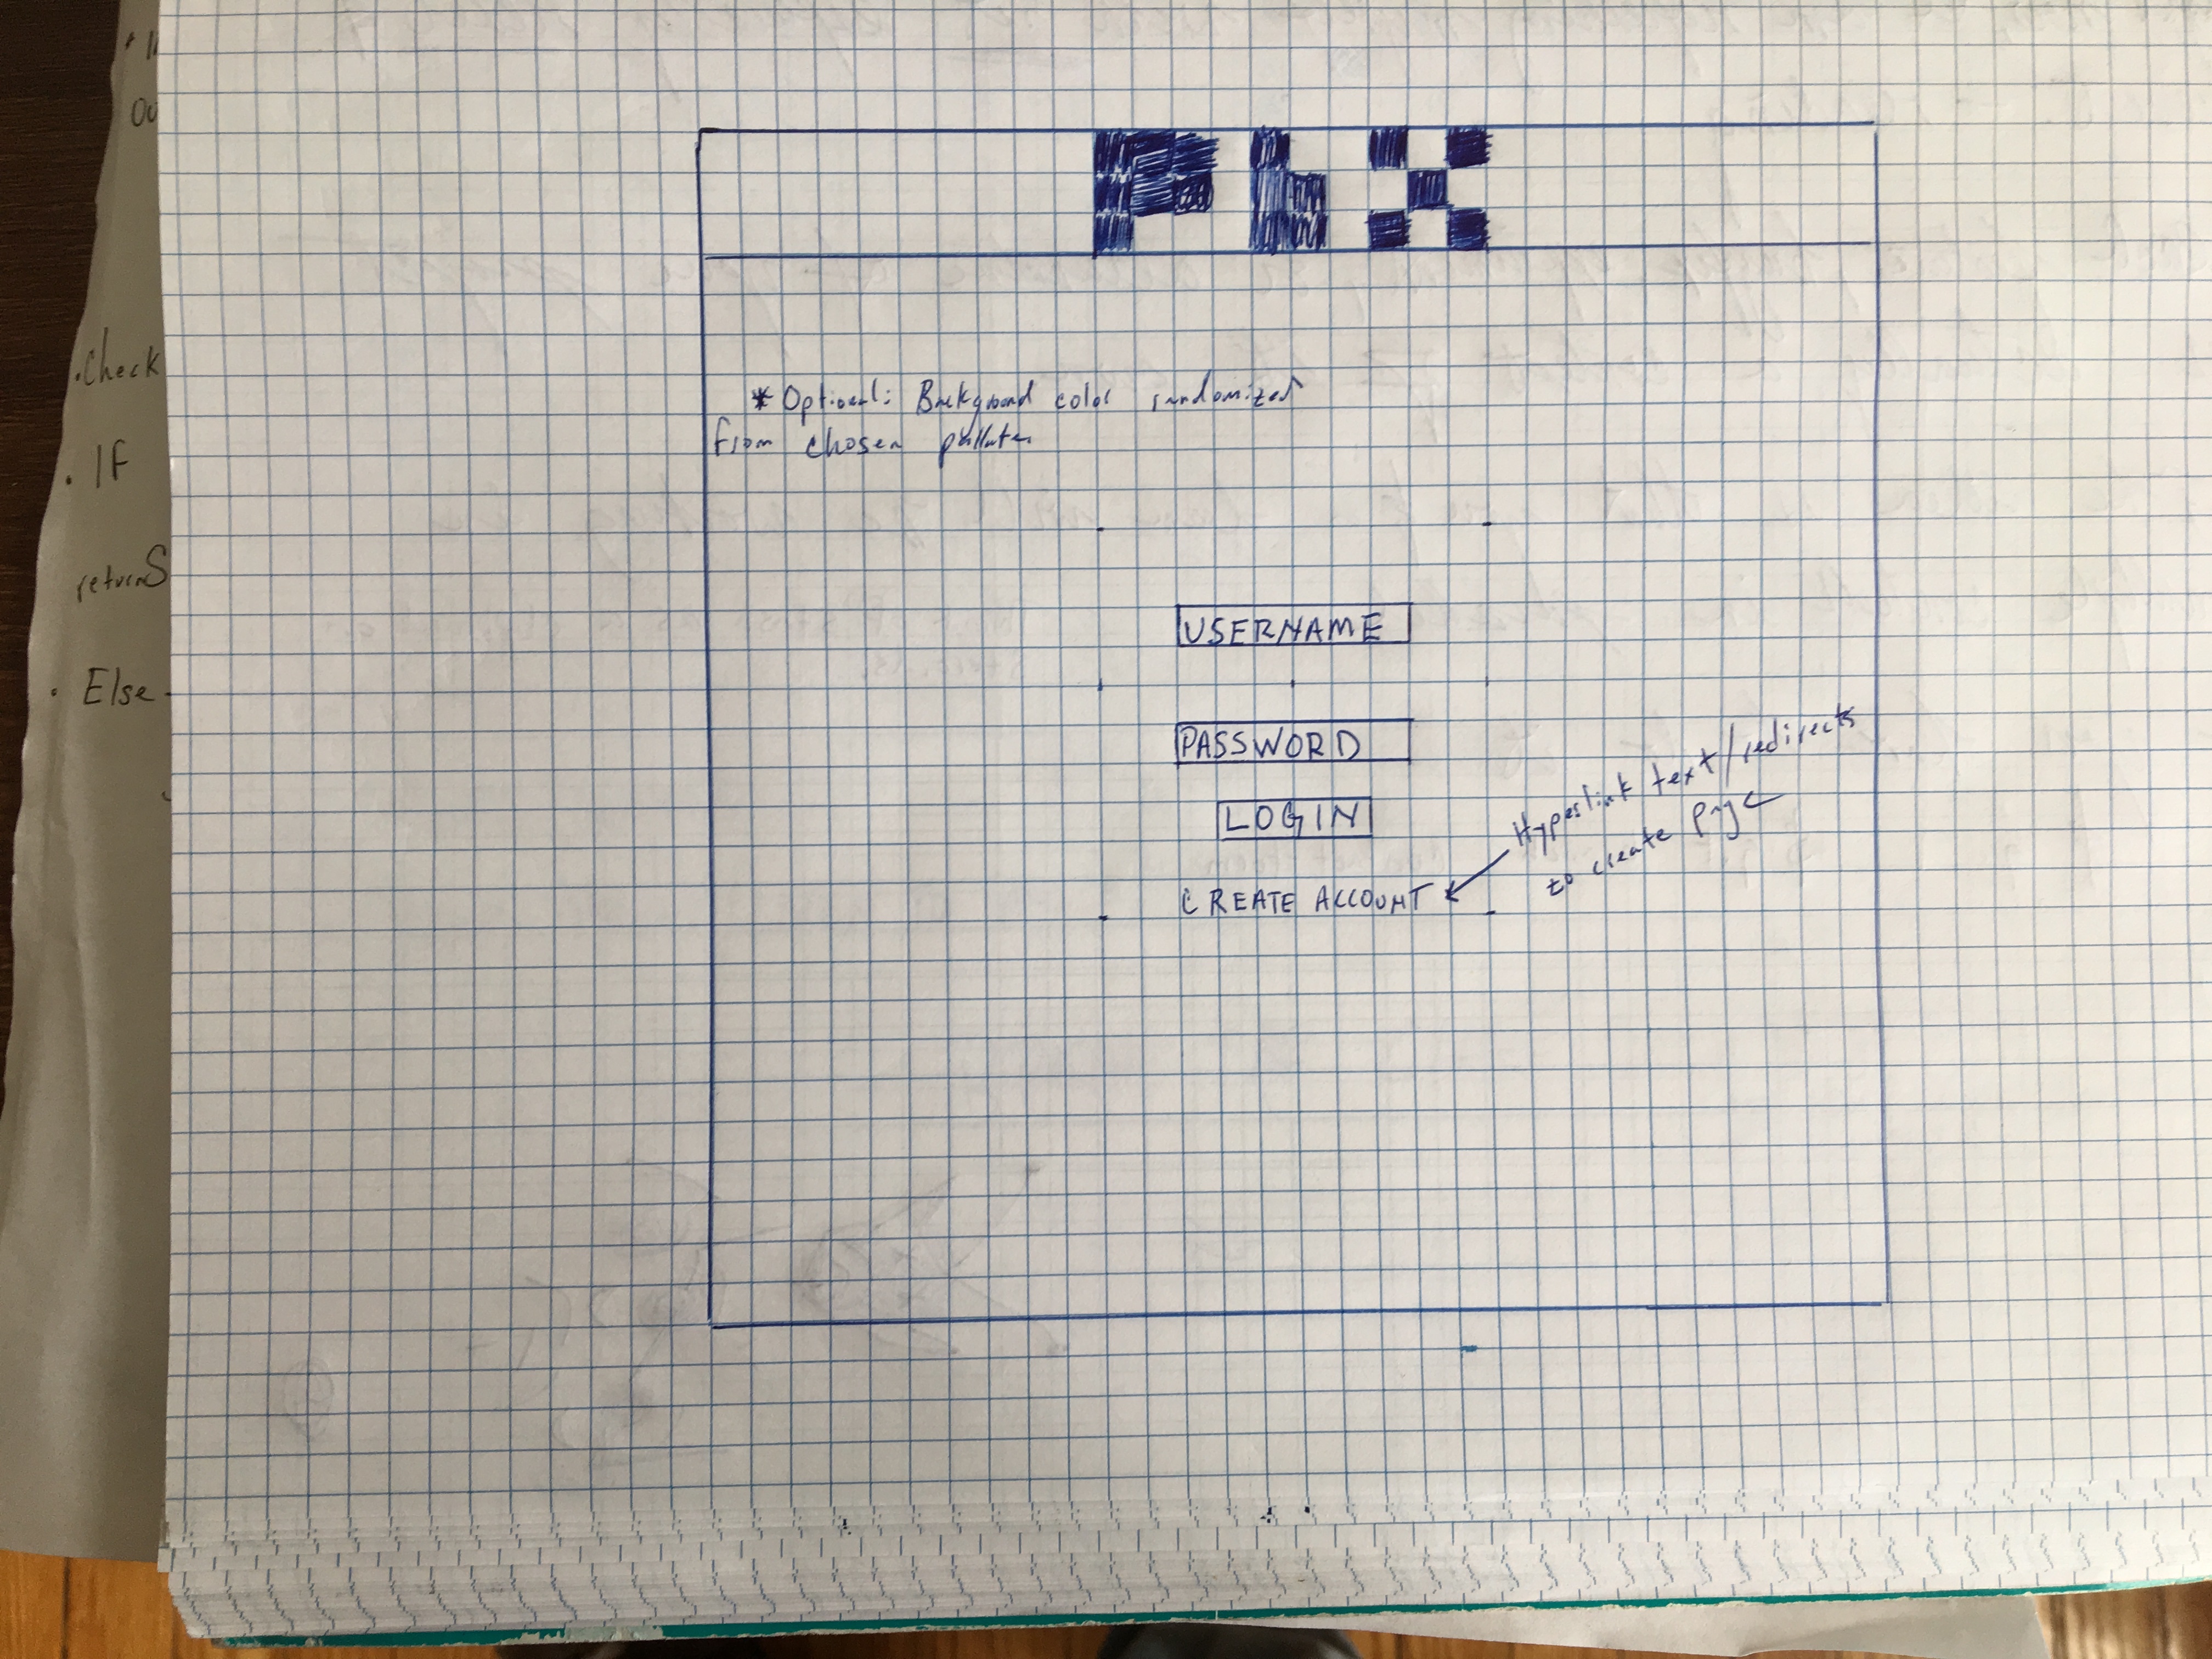 Check
If
returnS
Else
* Optional: Background color randomized
from chosen
USERNAME
PASSWORD
LOGIN
CREATE ACCOUNT
Hyperlink text/redirects
to create page